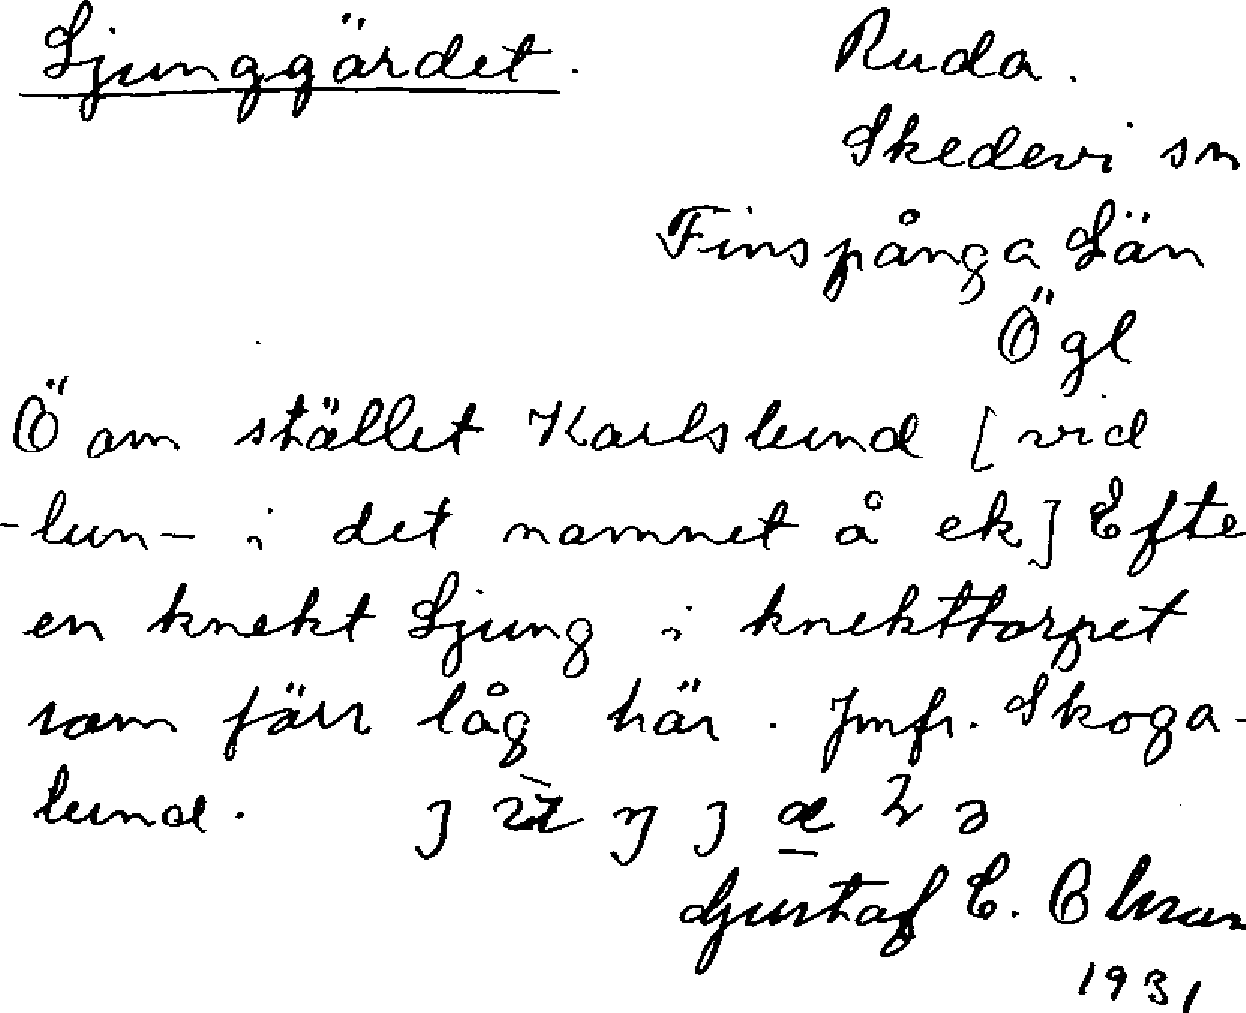 Ljunggärdet. Ruda.
Skedevi sn
Finspånga Län
Ögl
Ö om stället Karlslund [vid
-lun- i det namnet å ek] Efte
en knekt Ljung i knekttorpet
som förr låg här. Jmfr. Skoga-
lund.
Gustaf E. Olsson
1931